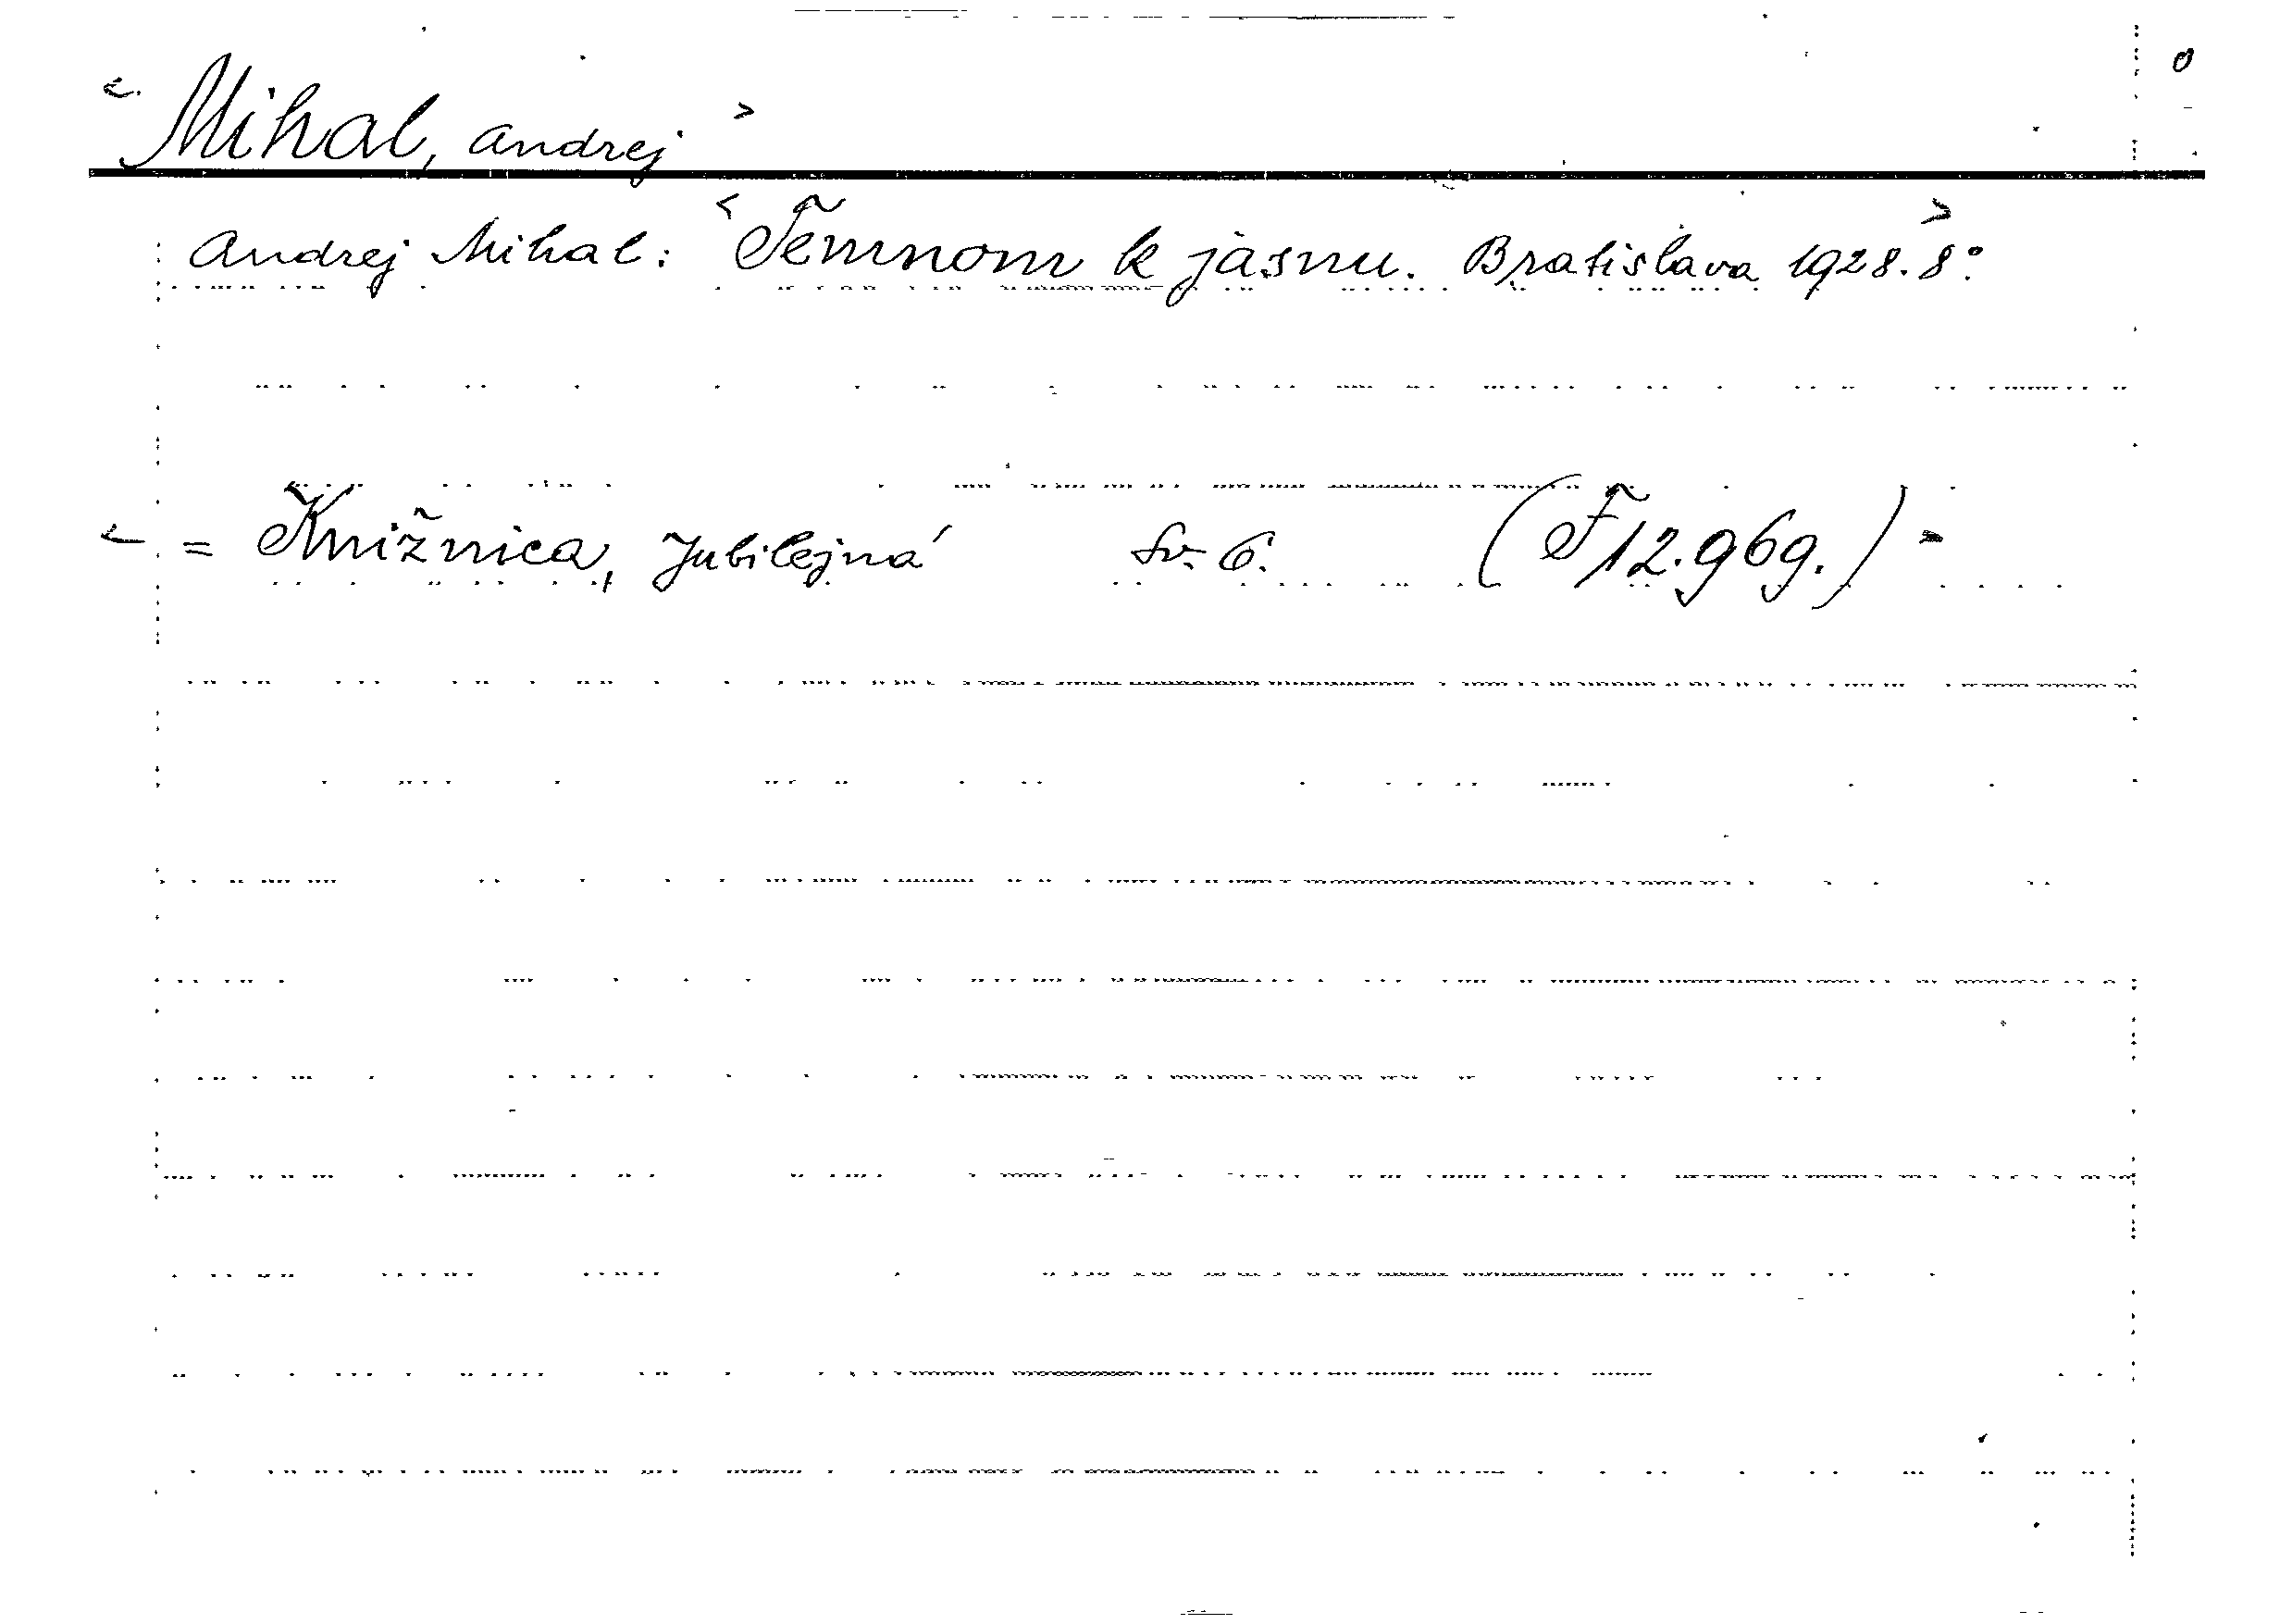 <Mihal, Andrej>
Andrej Mihal: <Temnom k jasnu. Bratislava 1928.> 8°.
<= Knižnica, Jubilejná Sv. 6. (F 12.969.)>